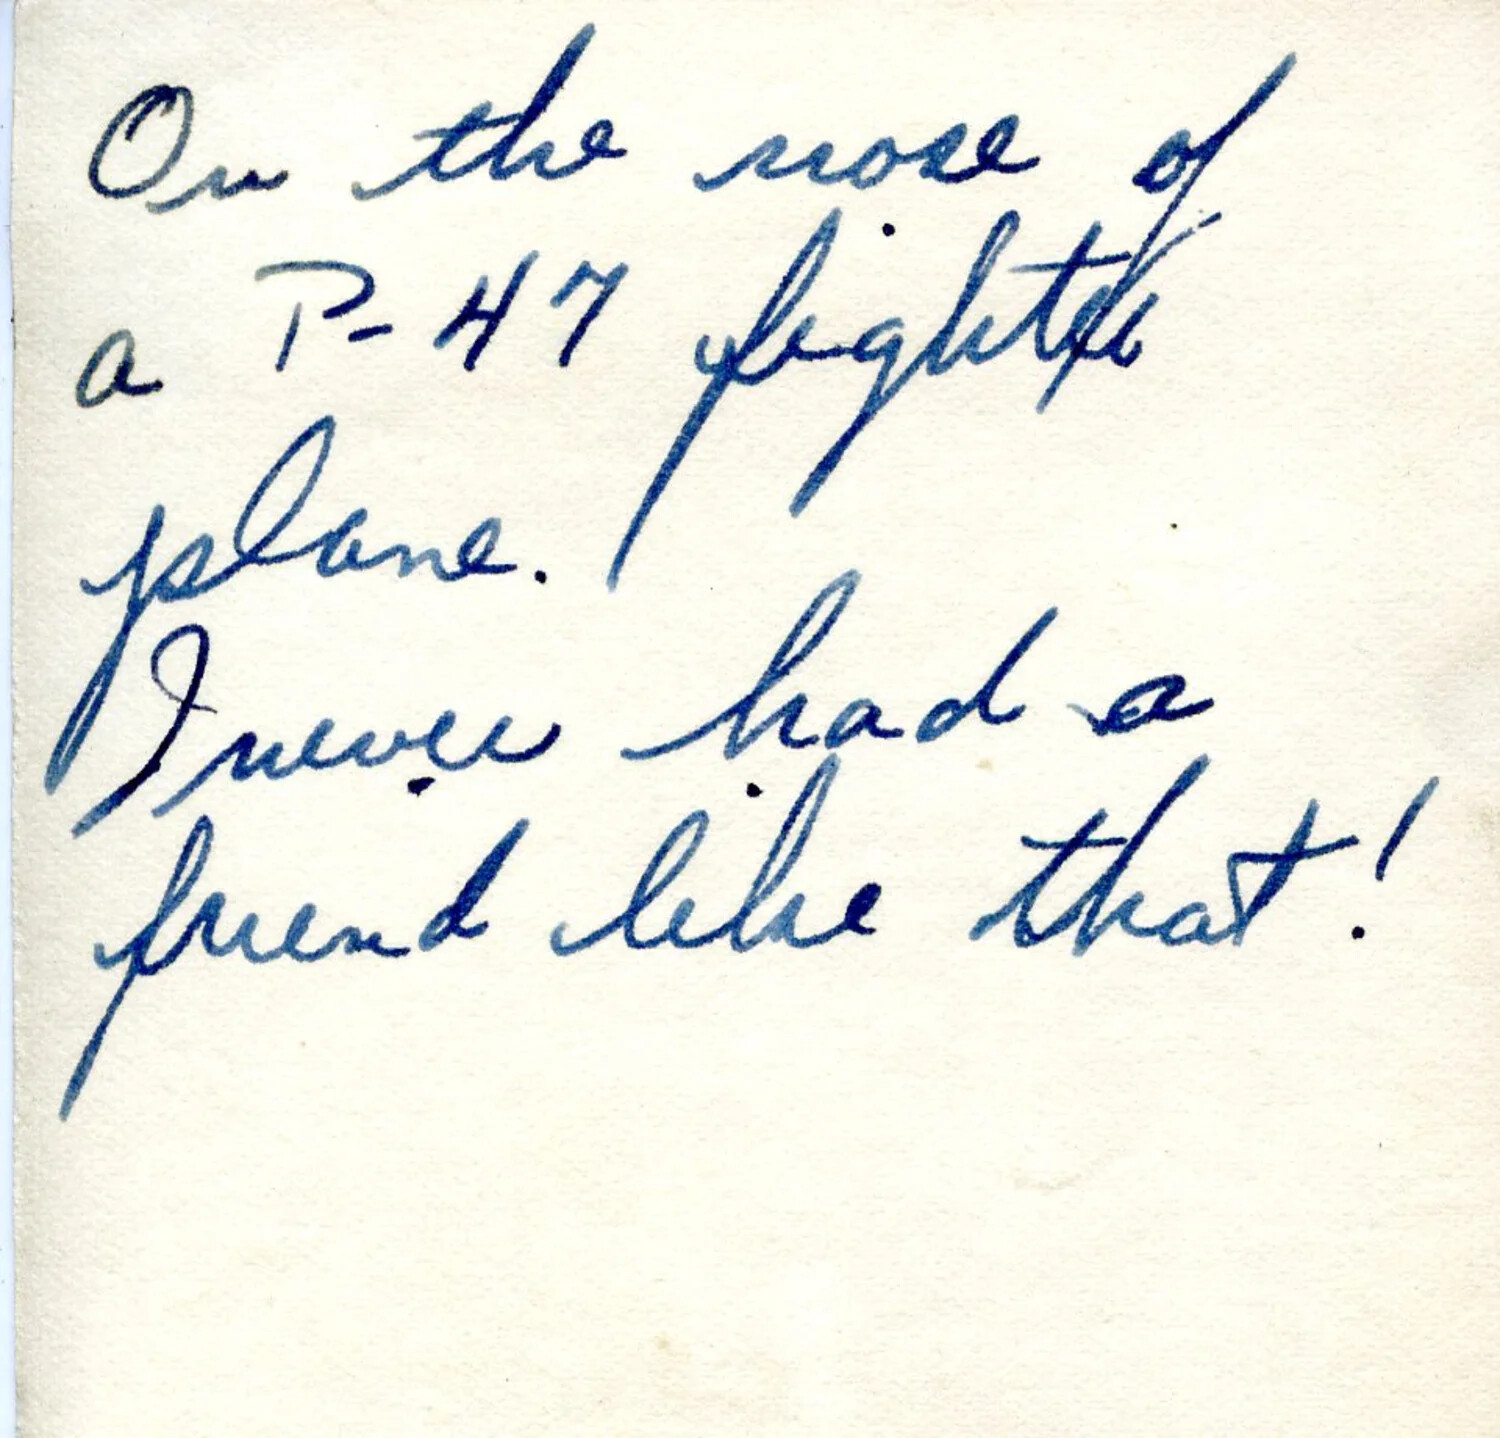 On the nose of
a P-47 fighter
plane.
I never had a
friend like that!